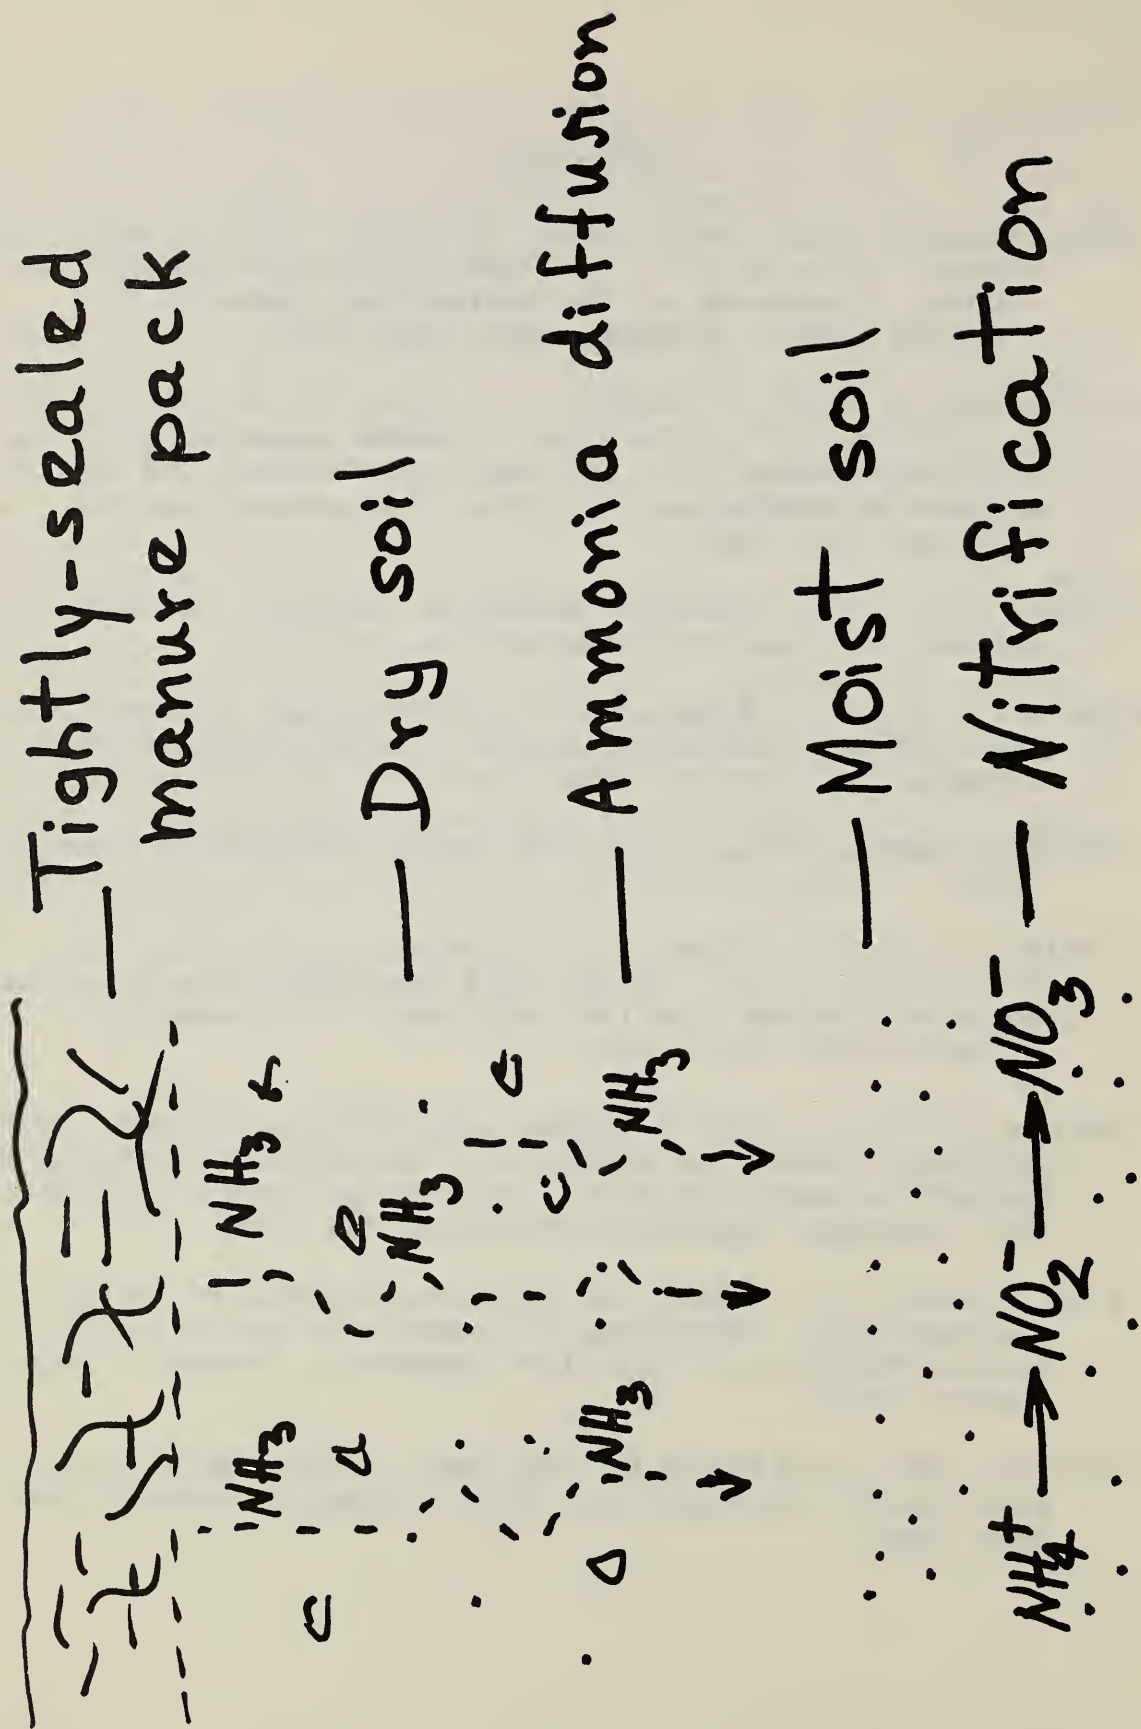 Tightly-sealed
manure pack
NH₃ NH₃
Dry soil
NH₃
Ammonia diffusion
NH₃ NH₃
Moist soil
NH₄⁺ → NO₂⁻ → NO₃⁻ — Nitrification